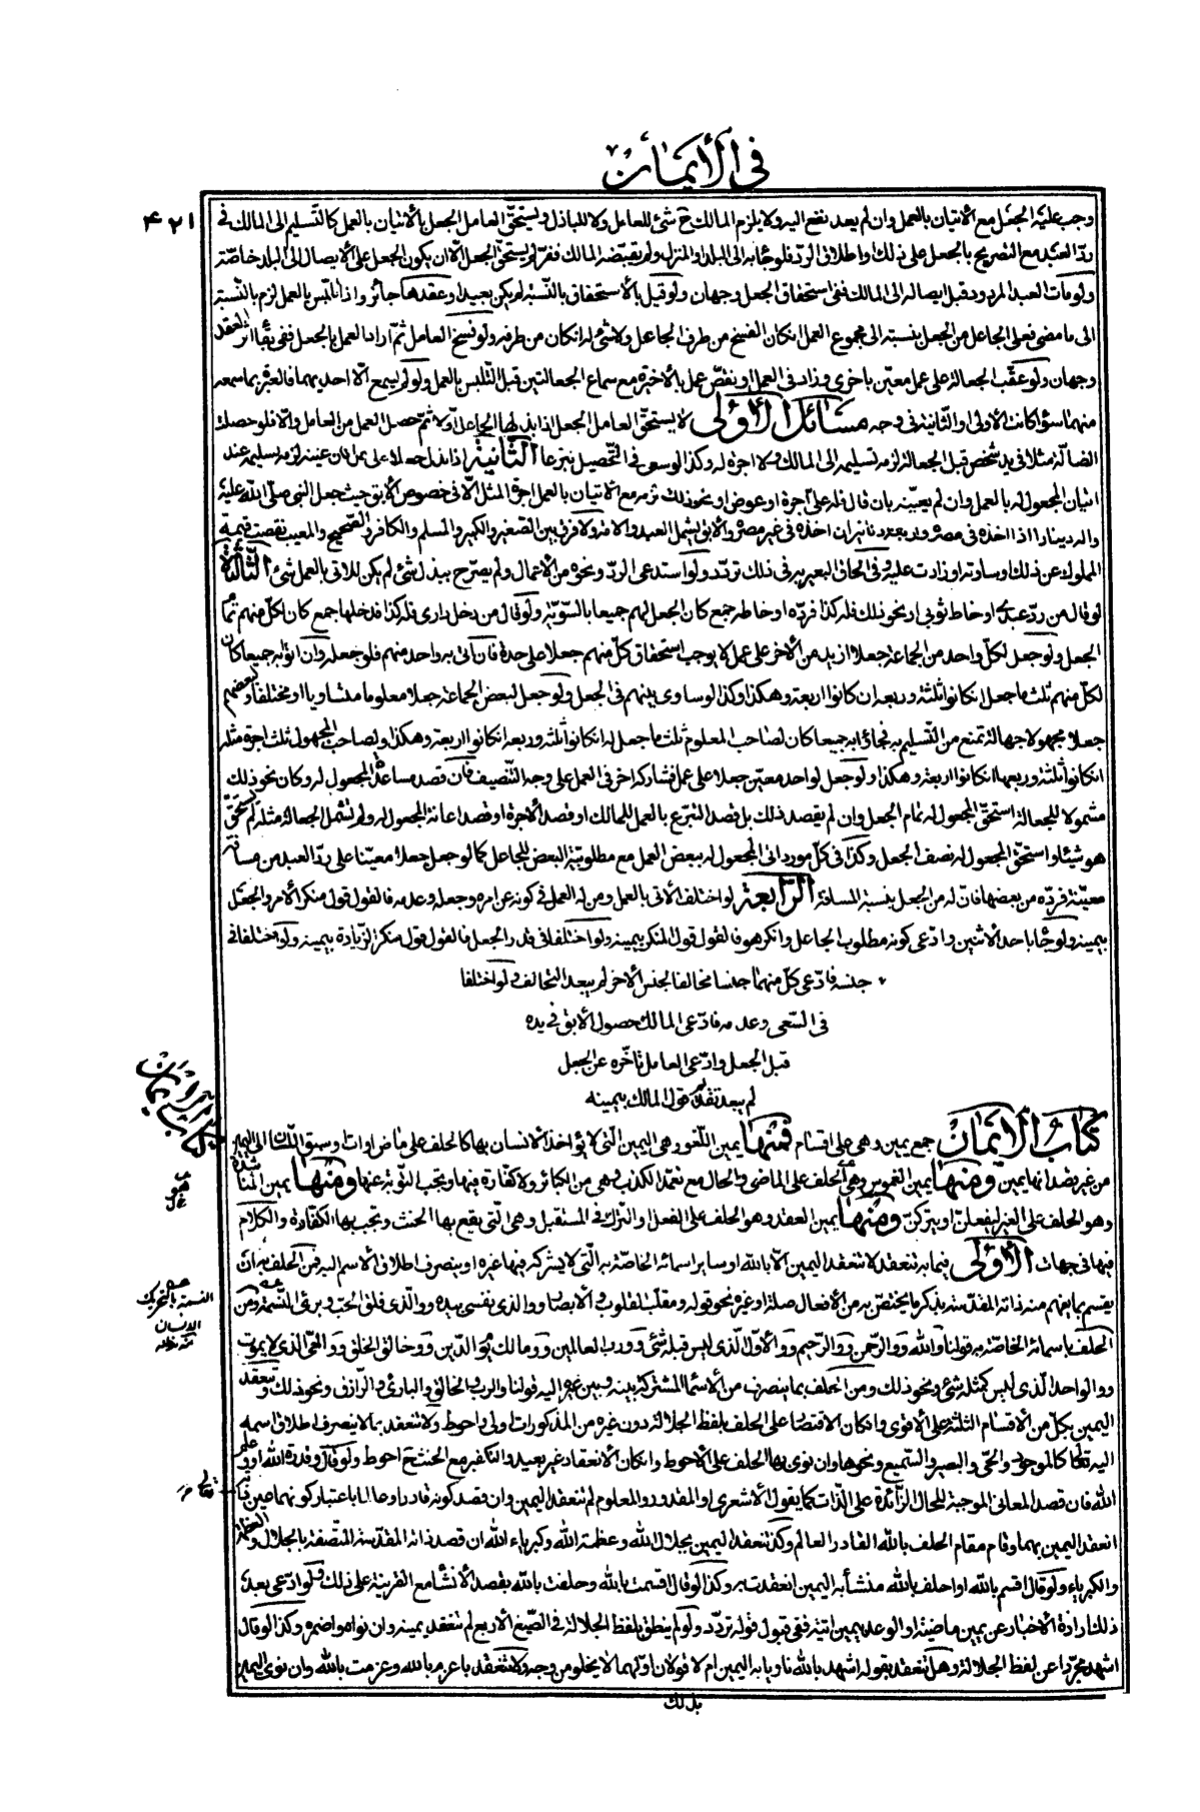 في الأيمان
٤٢١
وجب عليه الجعل مع الأتيان بالعمل وان لم يعد نفع اليه ولا يلزم المالك ح شئ للعامل ولا للباذل ويستحق العامل الجعل بالأتيان بالعمل كالتسليم الى المالك في
ردّ العبد مع التصريح بالجعل على ذلك واطلاق الردّ فلو جاء به الى البلد او المنزل ولم يقبضه المالك ففرّ لم يستحق الجعل الّا ان يكون الجعل على الأيصال الى البلد خاصّة
ولو مات العبد المردود قبل ايصاله الى المالك ففى استحقاق الجعل وجهان ولو قيل بالأستحقاق بالنسبة لم يكن بعيدا وعقدها جائز واذا تلبّس بالعمل لزم بالنسبة
الى ما مضى فعلى الجاعل من الجعل بنسبته الى مجموع العمل انكان الفسخ من طرف الجاعل ولا شئ له انكان من طرفه ولو فسخ العامل ثمّ اراد العمل بالجعل ففى بقاء اثر العقد
وجهان ولو عقّب الجعالة على عمل معيّن باخرى وزاد فى العمل او نقص عمل بالأخيرة مع سماع الجعالتين قبل التلبس بالعمل ولو لم يسمع الّا احديهما فالعبرة بما سمعه
منهما سواء كانت الاولى او الثانية فى وجه مسائل الأولى لا يستحق العامل الجعل الّا اذا بذلها الجاعل اوّلا ثمّ حصل العمل من العامل والّا فلو حصلت
الضالّة مثلا فى يد شخص قبل الجعالة لزمه تسليمه الى المالك ولا اجرة له وكذا لو سعى فى التحصيل تبرعا الثانية اذا بذل جعلا على عمل فان عيّنه لزمه تسليمه عند
اتيان المجعول له بالعمل وان لم يعيّنه بان قال فله علىّ اجرة او عوض او نحو ذلك لزمه مع الأتيان بالعمل اجرة المثل الّا فى خصوص الأبق حيث جعل النبى صلّى الله عليه
واله دينارا اذا اخذه فى مصره واربعة دنانير ان اخذه فى غير مصره والأبق يشمل العبد والامة ولا فرق بين الصغير والكبير والمسلم والكافر والصحيح والمعيب نقصت قيمة
المملوك عن ذلك او ساوته او زادت عليه وفى الحاق البعير به فى ذلك تردّد ولو استدعى الردّ ونحوه من الأعمال ولم يصرّح ببذل شئ لم يكن للاتى بالعمل شئ الثالثة
لو قال من ردّ عبدى او خاط ثوبى او نحو ذلك فله كذا فردّه او خاطه جمع كان الجعل لهم جميعا بالسّويّة ولو قال من دخل دارى فله كذا فدخلها جمع كان لكلّ منهم تمام
الجعل ولو جعل لكلّ واحد من الجماعة جعلا ازيد من الأخر على عمل لا يوجب استحقاق كلّ منهم جعلا على حدة فان اتى به واحد منهم فله جعله وان اتوا به جميعا كان
لكلّ منهم ثلث ما جعل انكانوا ثلثة وربعه ان كانوا اربعة وهكذا وكذا لو ساوى بينهم فى الجعل ولو جعل لبعض الجماعة جعلا معلوما متساويا او مختلفا ولبعضهم
جعلا مجهولا جهالة تمنع من التسليم به فجاؤا به جميعا كان لصاحب المعلوم ثلث ما جعل له انكانوا ثلثة وربعه انكانوا اربعة وهكذا ولصاحب المجهول ثلث اجرة مثله
انكانوا ثلثة وربعها انكانوا اربعة وهكذا ولو جعل لواحد معيّن جعلا على عمل فشاركه اخر فى العمل على وجه التنصيف فان قصد مساعدة المجعول له وكان نحو ذلك
مشمولا للجعالة استحق المجعول له تمام الجعل وان لم يقصد ذلك بل قصد التبرع بالعمل للمالك او قصد الأجرة او قصد اعانة المجعول له ولم تشمل الجعالة مثله لم يستحقّ
هو شيئا واستحق المجعول له نصف الجعل وكذا فى كلّ مورد اتى المجعول له ببعض العمل مع مطلوبيّة البعض للجاعل كما لو جعل جعلا معيّنا على ردّ العبد من مسافة
معيّنة فردّه من بعضها فانّ له من الجعل بنسبة المسافة الرّابعة لو اختلف الأتى بالعمل ومن له العمل فى كونه عن امره وجعله وعدمه فالقول قول منكر الأمر والجعل
بيمينه ولو جاء باحد الأثنين وادّعى كونه مطلوب الجاعل وانكر هو فالقول قول المنكر بيمينه ولو اختلفا فى قدر الجعل فالقول قول منكر الزّيادة بيمينه ولو اختلفا فى
جنسه فادّعى كلّ منهما جنسا مخالفا لجنس الأخر لم يبعد التحالف ولو اختلفا
فى السّعى وعدمه فادّعى المالك حصول الأبق فى يده
قبل الجعل وادّعى العامل تأخّره عن الجعل
لم يبعد تقديم قول المالك بيمينه
كتاب الأيمان جمع يمين وهى على اقسام فمنها يمين اللّغو وهى اليمين التى لا يؤاخذ الأنسان بها كالحلف على ماض او ات او سبق اللّسان الى اليمين
من غير قصد انها يمين ومنها يمين الغموس وهى الحلف على الماضى والحال مع تعمّد الكذب وهى من الكبائر ولا كفارة فيها وتجب التّوبة عنها ومنها يمين المناشدة
وهو الحلف على الغير ليفعلنّ او يتركنّ ومنها يمين العقد وهو الحلف على الفعل او الترك فى المستقبل وهى الّتى يقع بها الحنث وتجب بها الكفّارة والكلام
فيها فى جهات الأولى فيما به تنعقد لا تنعقد اليمين الّا بالله او ساير اسمائه الخاصّة به الّتى لا يشركه فيها غيره او ينصرف اطلاق الأسم اليه فمن الحلف به ان
يقسم بما يفهم منه ذاته المقدّسة بذكر ما يختصّ به من الأفعال صلة او غيره نحو قوله ومقلّب القلوب والأبصار والذى نفسى بيده والّذى فلق الحبّة وبرئ النسمة ومن
الحلف باسمائه الخاصّة به قولنا والله ووالرّحمن ووالرّحيم ووالأوّل الّذى ليس قبله شئ وورب العالمين وومالك يوم الدّين ووخالق الخلق ووالحىّ الذى لا يموت
ووالواحد الّذى ليس كمثله شئ ونحو ذلك ومن الحلف بما ينصرف من الأسماء المشتركة بينه وبين غيره اليه قولنا والرب والخالق والبارئ والرّازق ونحو ذلك وتنعقد
اليمين بكلّ من الأقسام الثلثة على الأقوى وانكان الاقتصار على الحلف بلفظ الجلالة دون غيره من المذكورات اولى واحوط ولا تنعقد بما لا ينصرف اطلاق اسمه
اليه تعالى كالموجود والحىّ والبصير والسّميع ونحوها وان نوى بها الحلف على الأحوط وانكان الأنعقاد غير بعيد والتكفير مع الحنث ح احوط ولو قال وقدرة الله او وعلم
الله فان قصد المعانى الموجبة للحال الزّائدة على الذّات كما يقول الأشعرى او المقدور والمعلوم لم تنعقد اليمين وان قصد كونه قادرا وعالما باعتبار كونهما عين ذاته
انعقد اليمين بهما وقام مقام الحلف بالله القادر العالم وكذا تنعقد اليمين بجلال الله وعظمة الله وكبرياء الله ان قصد ذاته المقدّسة المتّصفة بالجلال والعظمة
والكبرياء ولو قال اقسم بالله او احلف بالله منشأ به اليمين انعقدت به وكذا لو قال اقسمت بالله وحلفت بالله بقصد الأنشاء مع القرينة على ذلك ولو ادّعى بعد
ذلك ارادة الأخبار عن يمين ماضية او الوعد بيمين اتية ففى قبول قوله تردّد ولو لم ينطق بلفظ الجلالة فى الصّيغ الأربع لم تنعقد يمينه وان نواه واضمره وكذا لو قال
اشهد مجرّدا عن لفظ الجلالة وهل تنعقد بقوله اشهد بالله ناويا به اليمين ام لا قولان اوّلهما لا يخلو من وجه ولا تنعقد باعزم بالله وعزمت بالله وان نوى اليمين
بذلك
كتاب الأيمان
النسمة بالتحريك
الانسان
منه